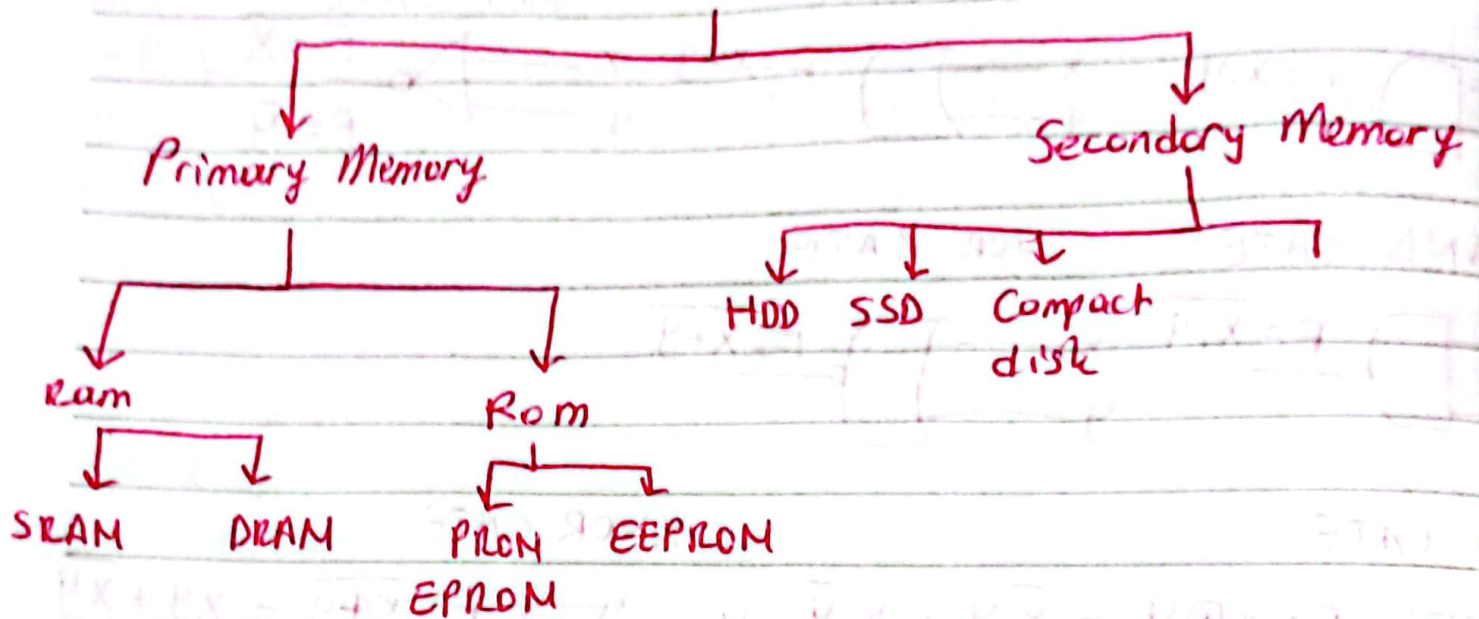 Primary Memory
Secondary Memory
HDD SSD Compact
disk
Ram
Rom
SRAM DRAM PROM EEPROM
EPROM